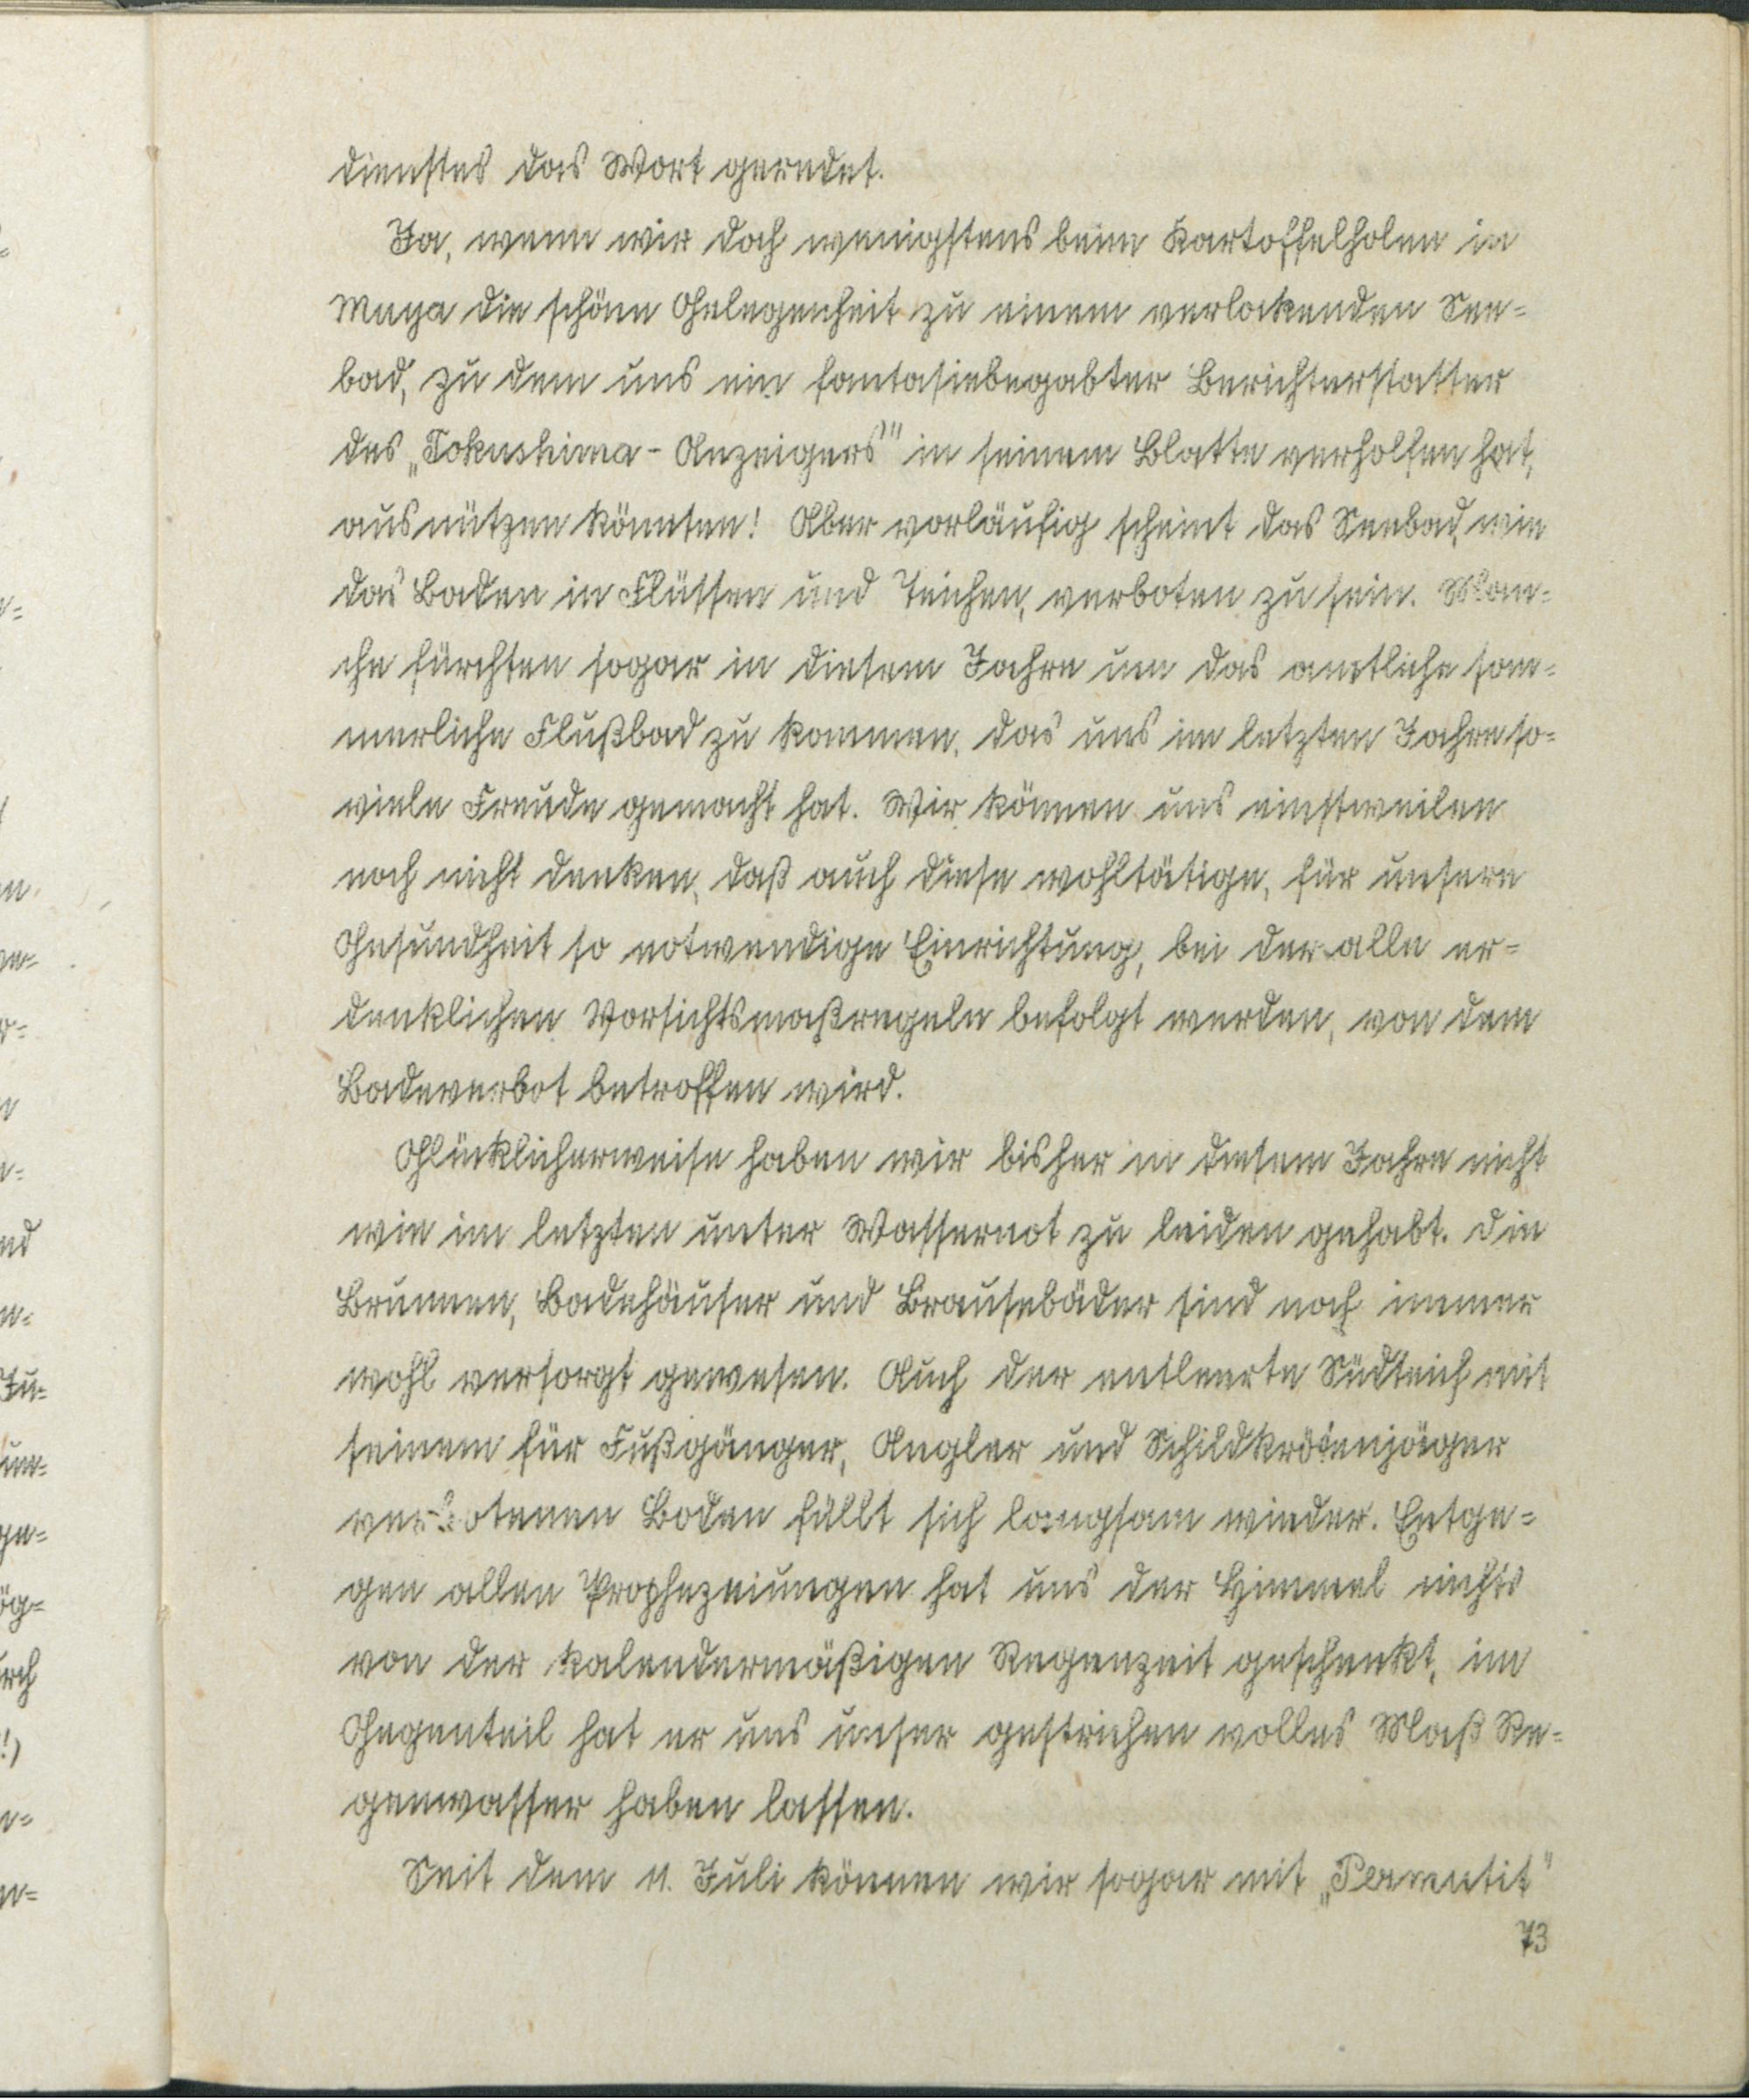 dienstes das Wort geredet.
Ja, wenn wir doch wenigstens beim Kartoffelholen in
Muya die schöne Gelegenheit zu einem verlockenden See-
bad, zu dem uns ein fantasiebegabter Berichterstatter
des „Tokushima-Anzeigers" in seinem Blatte verholfen hat,
ausnützen könnten! Aber vorläufig scheint das Seebad, wie
das Baden in Flüssen und Teichen, verboten zu sein. Man-
che fürchten sogar in diesem Jahre um das amtliche som-
merliche Flußbad zu kommen, das uns im letzten Jahre so-
viele Freude gemacht hat. Wir können uns einstweilen
noch nicht denken, daß auch diese wohltätige, für unsere
Gesundheit so notwendige Einrichtung, bei der alle er-
denklichen Vorsichtsmaßregeln befolgt werden, von dem
Badeverbot betroffen wird.
Glücklicherweise haben wir bisher in diesem Jahre nicht
wie im letzten unter Wassernot zu leiden gehabt. Die
Brunnen, Badehäuser und Brausebäder sind noch immer
wohl versorgt gewesen. Auch der entleerte Südteich mit
seinem für Fußgänger, Angler und Schildkrötenjäger
verbotenen Boden füllt sich langsam wieder. Entge-
gen allen Prophezeiungen hat uns der Himmel nichts
von der kalendermäßigen Regenzeit geschenkt, im
Gegenteil hat er uns unser gestrichen volles Maß Re-
genwasser haben lassen.
Seit dem 11. Juli können wir sogar mit „Permutit"
73